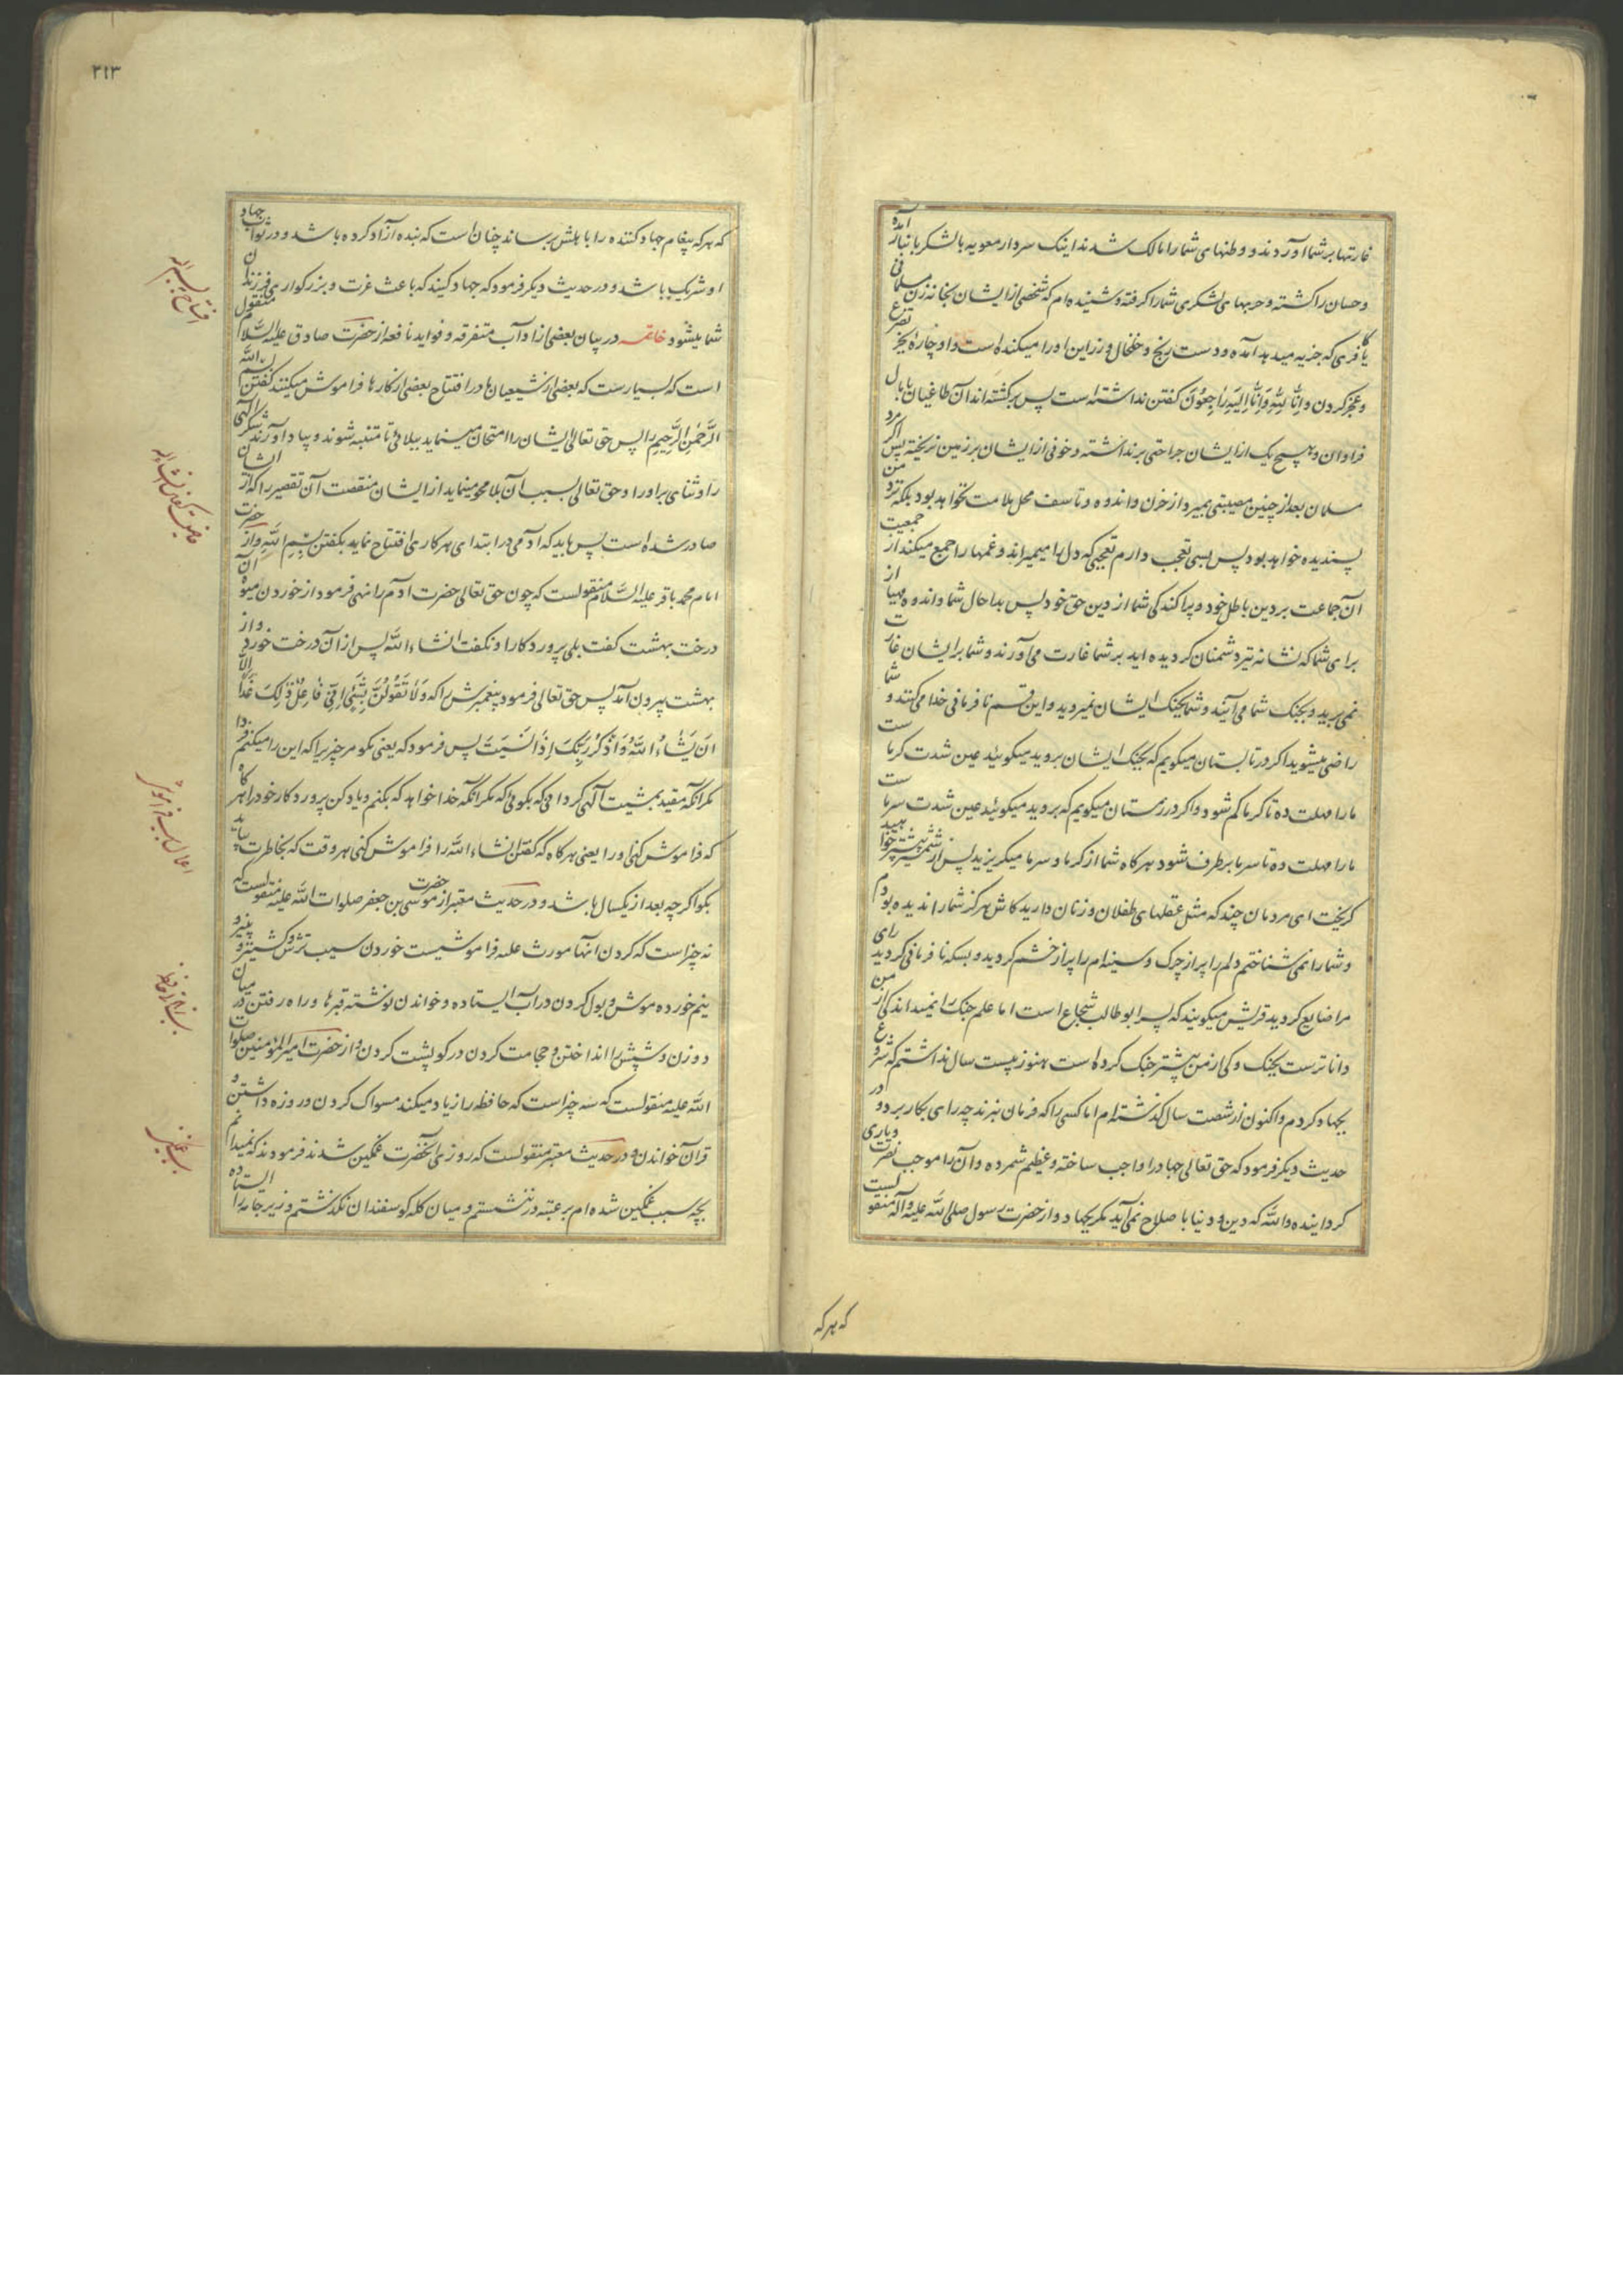 غارتها بر شما آوردند و وطنهای شما را مالک شدند اینک سردار معویه با لشکر بانبار آمده
و حسان را کشته و حربهای لشکری شما را گرفته و شنیده‌ام که شخصی از ایشان بخانه زن مسلمانی
یا کافری که جزیه میدهد آمده و دست رنج و خلخال و زر این او را میکنده است و او چاره بجز تضرع
و عجز کردن و اِنّا لِلّهِ وَاِنّا اِلَیهِ رٰاجِعُونَ گفتن نداشته است پس برگشته‌اند آن طاغیان با مال
فراوان و هیچ یک از ایشان جراحتی برنداشته و خونی از ایشان بر زمین نریخته پس اگر مرد
مسلمان بعد از چنین مصیبتی بمیرد از حزن و اندوه و تاسف محل ملامت نخواهد بود بلکه نزد من
پسندیده خواهد بود پس بسی تعجب دارم تعجبی که دل را میمیراند و غمها را جمع میکند از جمعیت
آن جماعت بر دین باطل خود و پراکندکی شما از دین حق خود پس بدا حال شما و اندوه مهیا از
برای شما که نشانه تیر دشمنان کردیده‌اید بر شما غارت می‌آورند و شما بر ایشان غارت
نمی‌برید و بجنک شما می‌آیند و شما بجنک ایشان نمیروید و این قسم نافرمانی خدا می‌کنند و شما
راضی میشوید اکر در تابستان میکویم که بجنک ایشان بروید میکوئید عین شدت کرماست
ما را مهلت ده تا کرما کم شود و اکر در زمستان میکویم که بروید میکوئید عین شدت سرماست
ما را مهلت ده تا سرما برطرف شود هرکاه شما از کرما و سرما میکریزید پس از شمشیر بیشتر خواهید
کریخت ای مردمان چند که مثل عقلهای طفلان و زنان دارید کاش هرکز شما را ندیده بودم
و شما را نمی‌شناختم دلم را پر از چرک و سینه‌ام را پر از خشم کردید و بسکه نافرمانی کردید رای
مرا ضایع کردید قریش میکویند که پسر ابوطالب شجاع است اما علم جنک را نمیداند کی از من
داناتر است بجنک و کی از من پیشتر جنک کرده است هنوز بیست سال نداشتم که شروع
بجهاد کردم و اکنون از شصت سال کذشته‌ام اما کسی را که فرمان نبرند چه رای بکار برد و در
حدیث دیکر فرمود که حق تعالی جهاد را واجب ساخته و عظیم شمرده و آن را موجب نصرت و یاری
کردانیده والله که دین و دنیا باصلاح نمی‌آید مکر بجهاد و از حضرت رسول صلی الله علیه و آله منقولست
که هرکه
۲۱۳
که هرکه پیغام جهادکننده را باهلش برساند چنان است که بنده آزاد کرده باشد و در ثواب جهاد
او شریک باشد و در حدیث دیکر فرمود که جهاد کنید که باعث عزت و بزرکواری فرزندان
شما میشود خاتمه در بیان بعضی از آداب متفرقه و فواید نافعه از حضرت صادق علیه السّلام منقول
است که بسیارست که بعضی از شیعیان ما در افتتاح بعضی از کارها فراموش میکنند گفتن بسم الله
الرَّحمٰنِ الرَّحِیمِ را پس حق تعالی ایشان را امتحان مینماید ببلائی تا متنبه شوند و بیاد آورند شکر الهی
را و ثنای بر او را و حق تعالی بسبب آن بلا محو مینماید از ایشان منقصت آن تقصیر را که از ایشان
صادر شده است پس باید که آدمی در ابتدای هر کاری افتتاح نماید بکفتن بِسْمِ اللّهِ و از حضرت
امام محمد باقر علیه السّلام منقولست که چون حق تعالی حضرت آدم را نهی فرمود از خوردن میوه آن
درخت بهشت گفت بلی پروردکارا و نکفت انشاءالله پس از آن درخت خورد و از
بهشت بیرون آمد پس حق تعالی فرمود پیغمبرش را که وَلٰا تَقُولَنَّ لِشَیْءٍ اِنّی فٰاعِلٌ ذٰلِکَ غَداً اِلّا
اَنْ یَشٰاءَ اللّهُ وَاذْکُرْ رَبَّکَ اِذٰا نَسِیتَ پس فرمود که یعنی مکو مر چیزی را که این را میکنم فردا
مکر آنکه مقید بمشیت الهی کردانی که بکوئی که مکر آنکه خدا خواهد که بکنم و یاد کن پروردکار خود را هرکاه
که فراموش کنی او را یعنی هرکاه که گفتن انشاءالله را فراموش کنی هر وقت که بخاطرت بیاید
بکو اکرچه بعد از یکسال باشد و در حدیث معتبر از حضرت موسی بن جعفر صلوات الله علیه منقولست که
نه چیز است که کردن آنها مورث علت فراموشیست خوردن سیب ترش و کشنیز و پنیر و
نیم خورده موش و بول کردن در آب ایستاده و خواندن نوشته قبرها و راه رفتن در میان
دو زن و شپش را انداختن و حجامت کردن در کو پشت کردن و از حضرت امیرالمؤمنین صلوات
الله علیه منقولست که سه چیز است که حافظه را زیاد میکند مسواک کردن و روزه داشتن و
قرآن خواندن و در حدیث معتبر منقولست که روزی آنحضرت غمکین شدند فرمودند که نمیدانم
بچه سبب غمکین شده‌ام بر عتبه در ننشستم و میان کله کوسفندان نکذشتم و زیر جامه را ایستاده